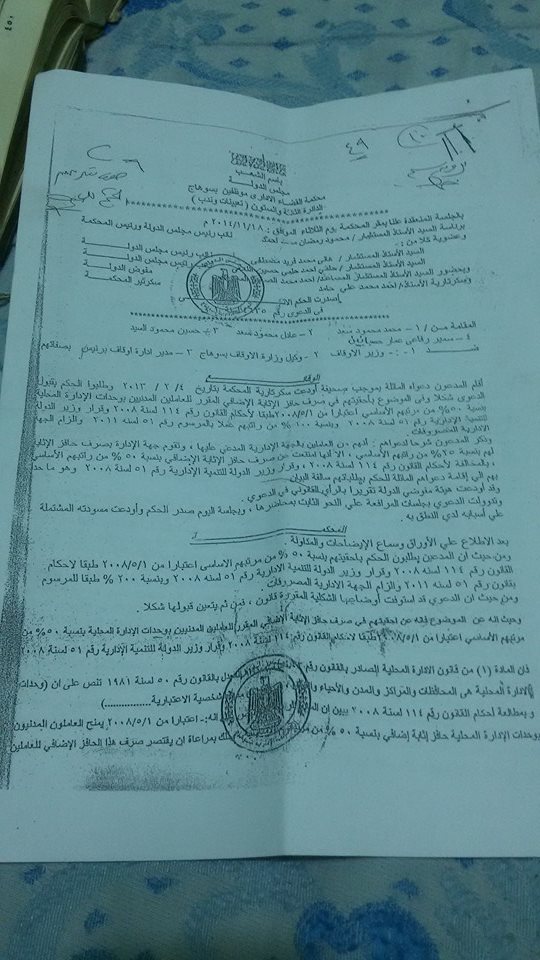 باسم الشعب
مجلس الدولة
محكمة القضاء الادارى موظفين بسوهاج
الدائرة الثالثة والستون ( تعيينات وندب )
بالجلسة المنعقدة علنا بمقر المحكمة يوم الثلاثاء الموافق : ٢٠١٤/١١/١٨
برئاسة السيد الأستاذ المستشار / محمود رمضان محمد احمد نائب رئيس مجلس الدولة ورئيس المحكمة
وعضوية كلا من :
السيد الأستاذ المستشار / هانى محمد فريد مصطفى نائب رئيس مجلس الدولة
السيد الأستاذ المستشار / حلمى احمد حلمى حسين نائب رئيس مجلس الدولة
وبحضور السيد الأستاذ المستشار المساعد / احمد محمد مفوض الدولة
وسكرتارية الأستاذ / احمد محمد على حامد سكرتير المحكمة
أصدرت الحكم الآتى
فى الدعوى رقم
المقامة من / ١- محمد محمود سعد ٢- عادل محمود سعد ٣- حسين محمود السيد
٤- سمير رفاعى عمار
ضد : ١- وزير الأوقاف ٢- وكيل وزارة الاوقاف بسوهاج ٣- مدير ادارة اوقاف بصفاتهم
الوقائع
أقام المدعون دعواهم الماثلة بموجب صحيفة أودعت سكرتارية المحكمة بتاريخ ٤ / ٢ / ٢٠١٣ وطلبوا الحكم بقبول
الدعوى شكلا وفى الموضوع بأحقيتهم فى صرف حافز الإثابة الإضافي المقرر للعاملين المدنيين بوحدات الإدارة المحلية
بنسبة ٥٠% من مرتبهم الأساسي اعتبارا من ٢٠٠٨/٥/١ طبقا لأحكام القانون رقم ١١٤ لسنة ٢٠٠٨ وقرار وزير الدولة
للتنمية الإدارية رقم ٥١ لسنة ٢٠٠٨ وبنسبة ١٠٠% من راتبهم عملا بالمرسوم رقم ٥١ لسنة ٢٠١١ وإلزام الجهة
الادارية المصروفات
وذكر المدعون شرحا لدعواهم : أنهم من العاملين بالجهة الإدارية المدعي عليها ، وتقوم جهة الإدارة بصرف حافز الإثابة
لهم بنسبة ٢٥% من راتبهم الأساسي ، الا أنها امتنعت عن صرف حافز الإثابة الإضافي بنسبة ٥٠% من راتبهم الأساسي
، بالمخالفة لأحكام القانون رقم ١١٤ لسنة ٢٠٠٨ ، وقرار وزير الدولة للتنمية الإدارية رقم ٥١ لسنة ٢٠٠٨ وهو ما حدا
بهم الي إقامة دعواهم الماثلة للحكم بطلباتهم سالفة البيان
وقد أودعت هيئة مفوضي الدولة تقريرا بالرأي القانوني في الدعوي .
وتدوولت الدعوي بجلسات المرافعة على النحو الثابت بمحاضرها ، وبجلسة اليوم صدر الحكم وأودعت مسودته المشتملة
علي أسبابه لدي النطق به .
المحكمة
بعد الاطلاع علي الأوراق وسماع الإيضاحات والمداولة .
ومن حيث ان المدعين يطلبون الحكم بأحقيتهم بنسبة ٥٠% من مرتبهم الاساسى اعتبارا من ٢٠٠٨/٥/١ طبقا لاحكام
القانون رقم ١١٤ لسنة ٢٠٠٨ وقرار وزير الدولة للتنمية الادارية رقم ٥١ لسنة ٢٠٠٨ وبنسبة ٢٠٠% طبقا للمرسوم
بقانون رقم ٥١ لسنة ٢٠١١ والزام الجهة الادارية المصروفات
ومن حيث ان الدعوي قد استوفت أوضاعها الشكلية المقررة قانون ، فمن ثم يتعين قبولها شكلا .
وحيث انه عن الموضوع فإنه عن احقيتهم فى صرف حافز الإثابة الإضافي المقرر للعاملين المدنيين بوحدات الإدارة المحلية بنسبة ٥٠% من
مرتبهم الأساسي اعتبارا من ٢٠٠٨/٥/١ طبقا لاحكام القانون رقم ١١٤ لسنة ٢٠٠٨ وقرار وزير الدولة للتنمية الإدارية رقم ٥١ لسنة ٢٠٠٨
فان المادة (١) من قانون الادارة المحلية الصادر بالقانون رقم بالقانون رقم ٥٠ لسنة ١٩٨١ تنص على ان (وحدات
الادارة المحلية هى المحافظات والمراكز والمدن والأحياء شخصية الاعتبارية ...............)
و بمطالعة أحكام القانون رقم ١١٤ لسنة ٢٠٠٨ يبين إن :- اعتبارا من ٢٠٠٨/٥/١ يمنح العاملون المدنيون
بوحدات الإدارة المحلية حافز إثابة إضافي بنسبة ٥٠% من بمراعاة ان يقتصر صرف هذا الحافز الإضافي للعاملين